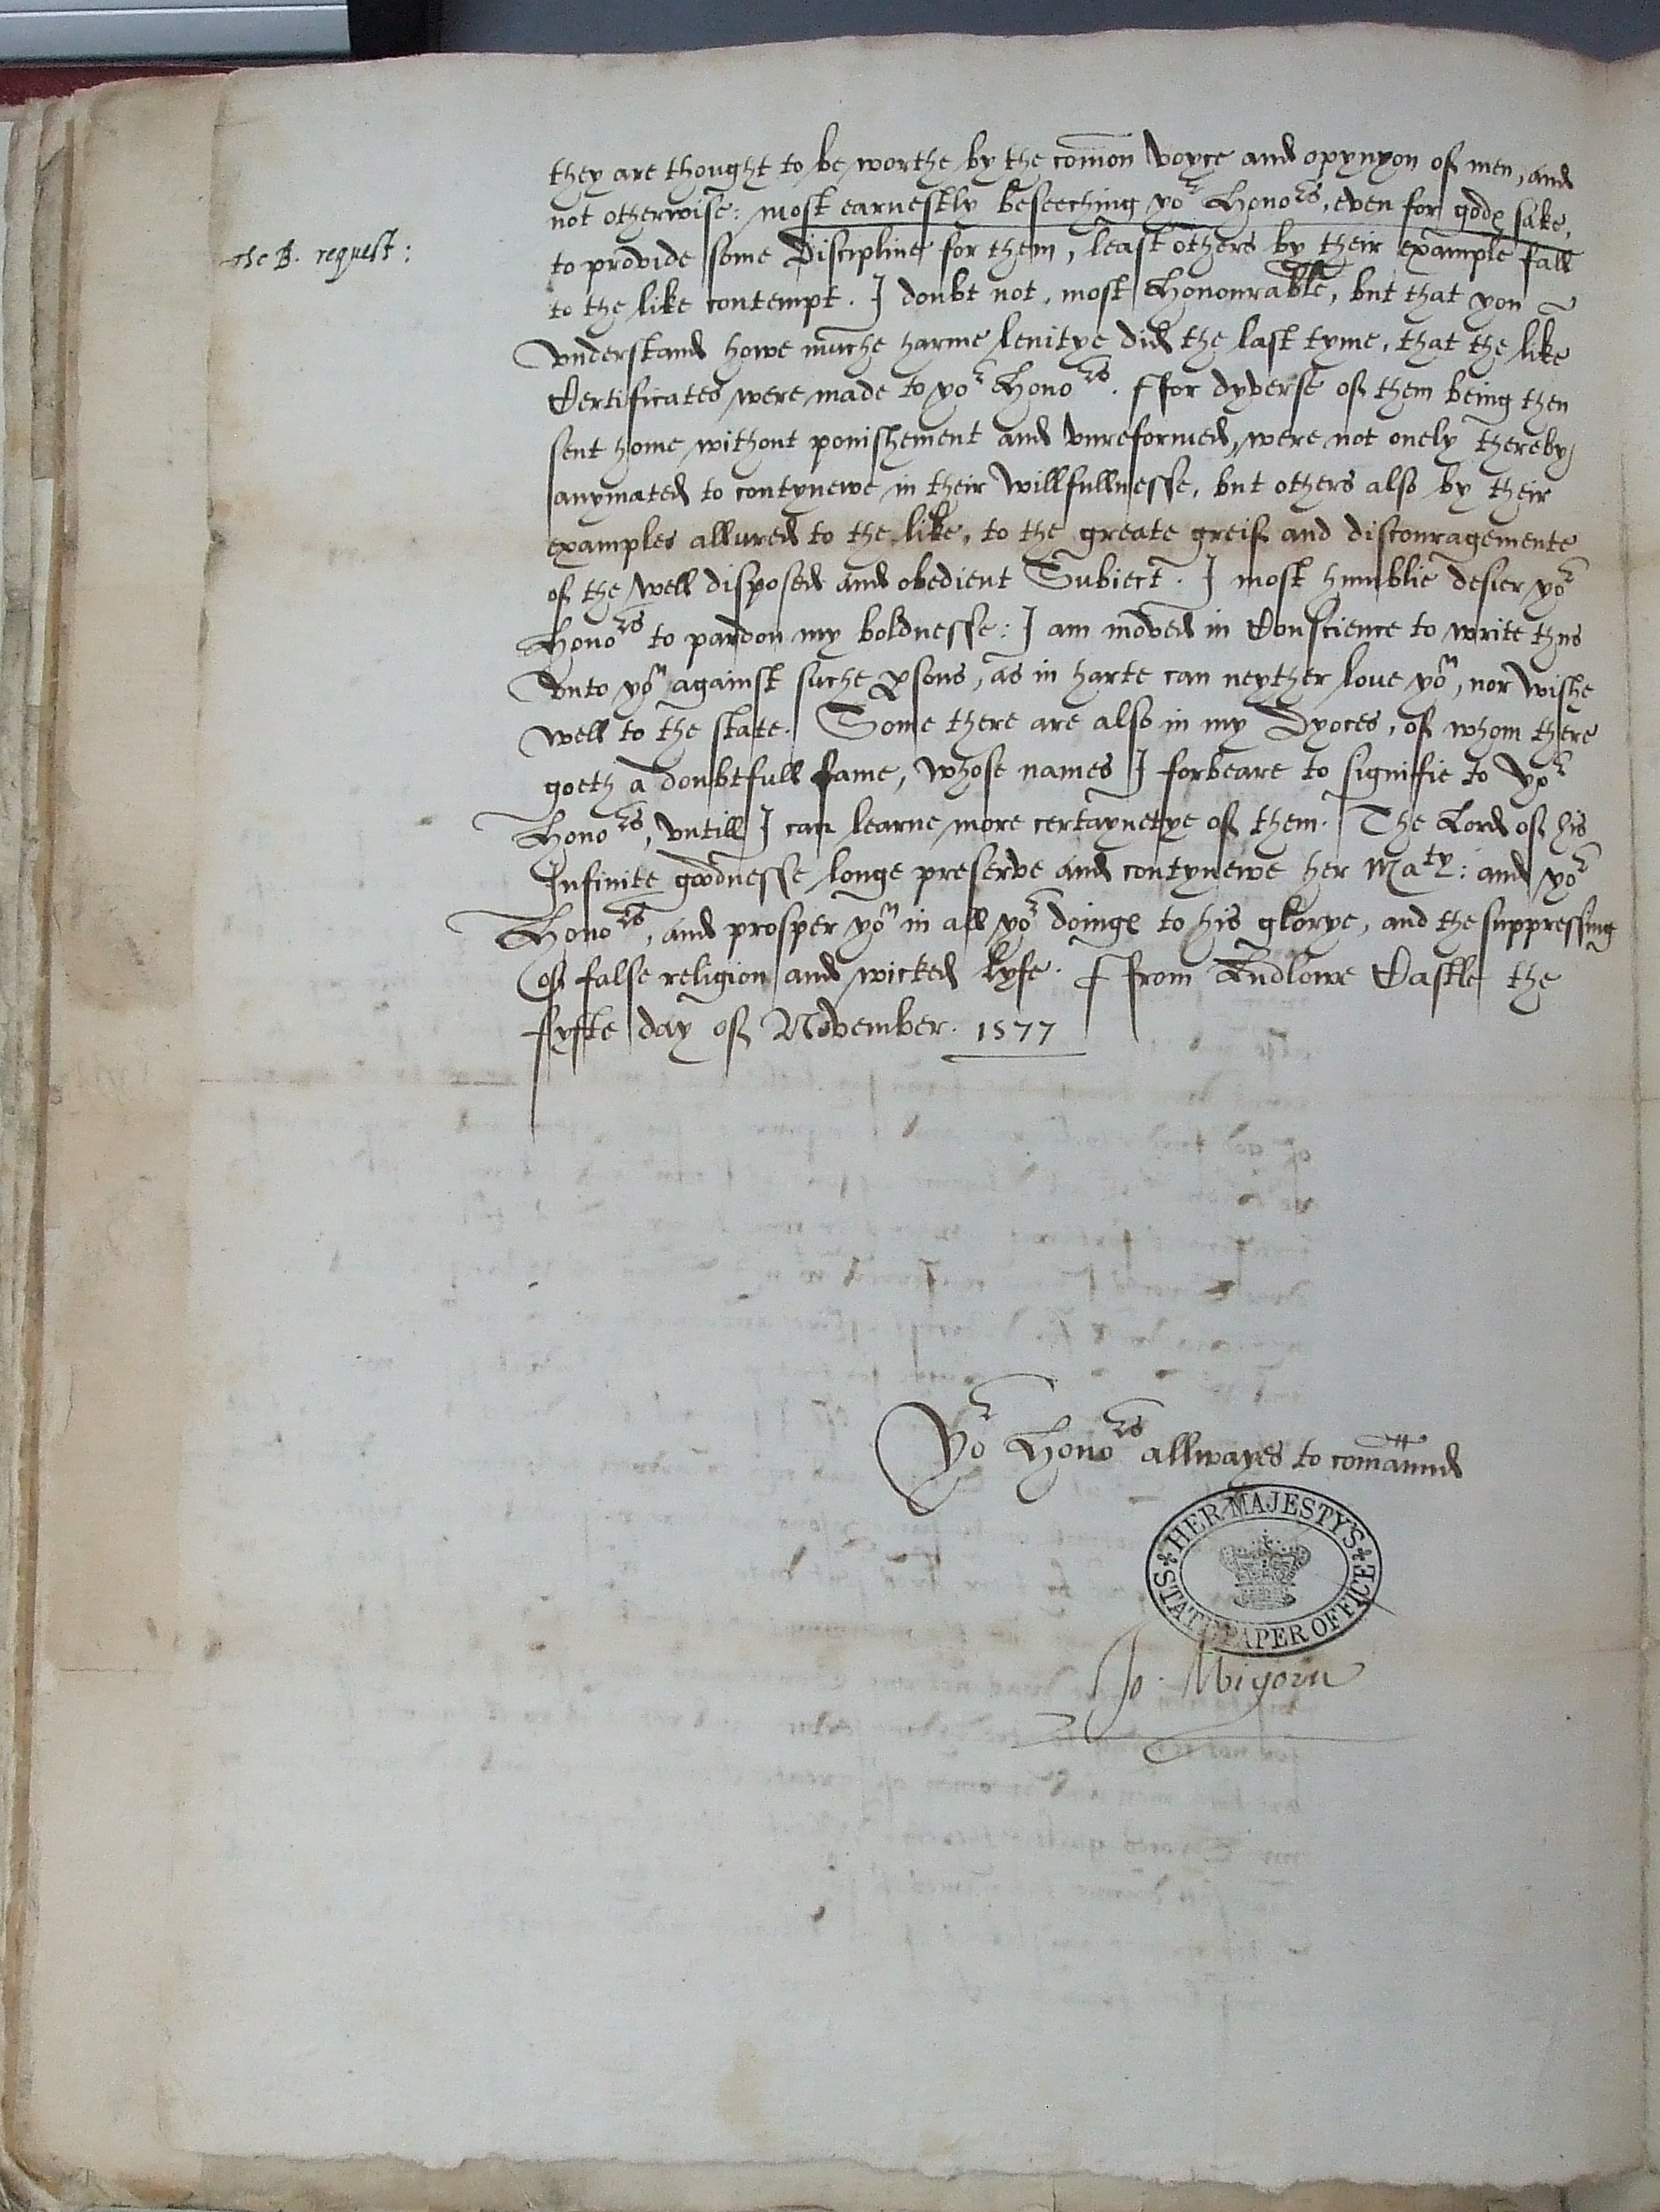 they are thought to be worthe by the com̄on voyce and opynyon of men, and
not otherwise: most earnestly beseeching yor Honors, even for godꝭ sake,
The B. request:
to provide some Discipline for them, least others by their example fall
to the like contempt. I doubt not, most Honourable, but that you
vnderstand howe muche harme lenitye did the last tyme, that the like
Certificates were made to yor Honors. ffor dyverse of them being then
sent home without ponishement and vnreformed, were not onely thereby
anymated to contynewe in their willfullnesse, but others also by their
examples allured to the like, to the greate greif and discouragemente
of the well disposed and obedient Subiect. I most humblie desier yor
Honors to pardon my boldnesse: I am moved in Conscience to write thus
vnto you against suche ꝑsons, as in harte can neyther loue you, nor wishe
well to the state. Some there are also in my Dyoces, of whom there
goeth a doubtfull fame, whose names I forbeare to signifie to yor
Honors, vntill I can learne more certaynetye of them. The Lord of his
Infinite goodnesse longe preserve and contynewe her Maty: and yor
Honors, and prosper you in all yor doingꝭ to his glorye, and the suppressing
of false religion and wicked lyfe. ffrom Ludlowe Castle the
fyfte day of November. 1577
Yor Honors allwayes to com̄aund
HER MAJESTY'S STATE PAPER OFFICE
Jo. Wigorn